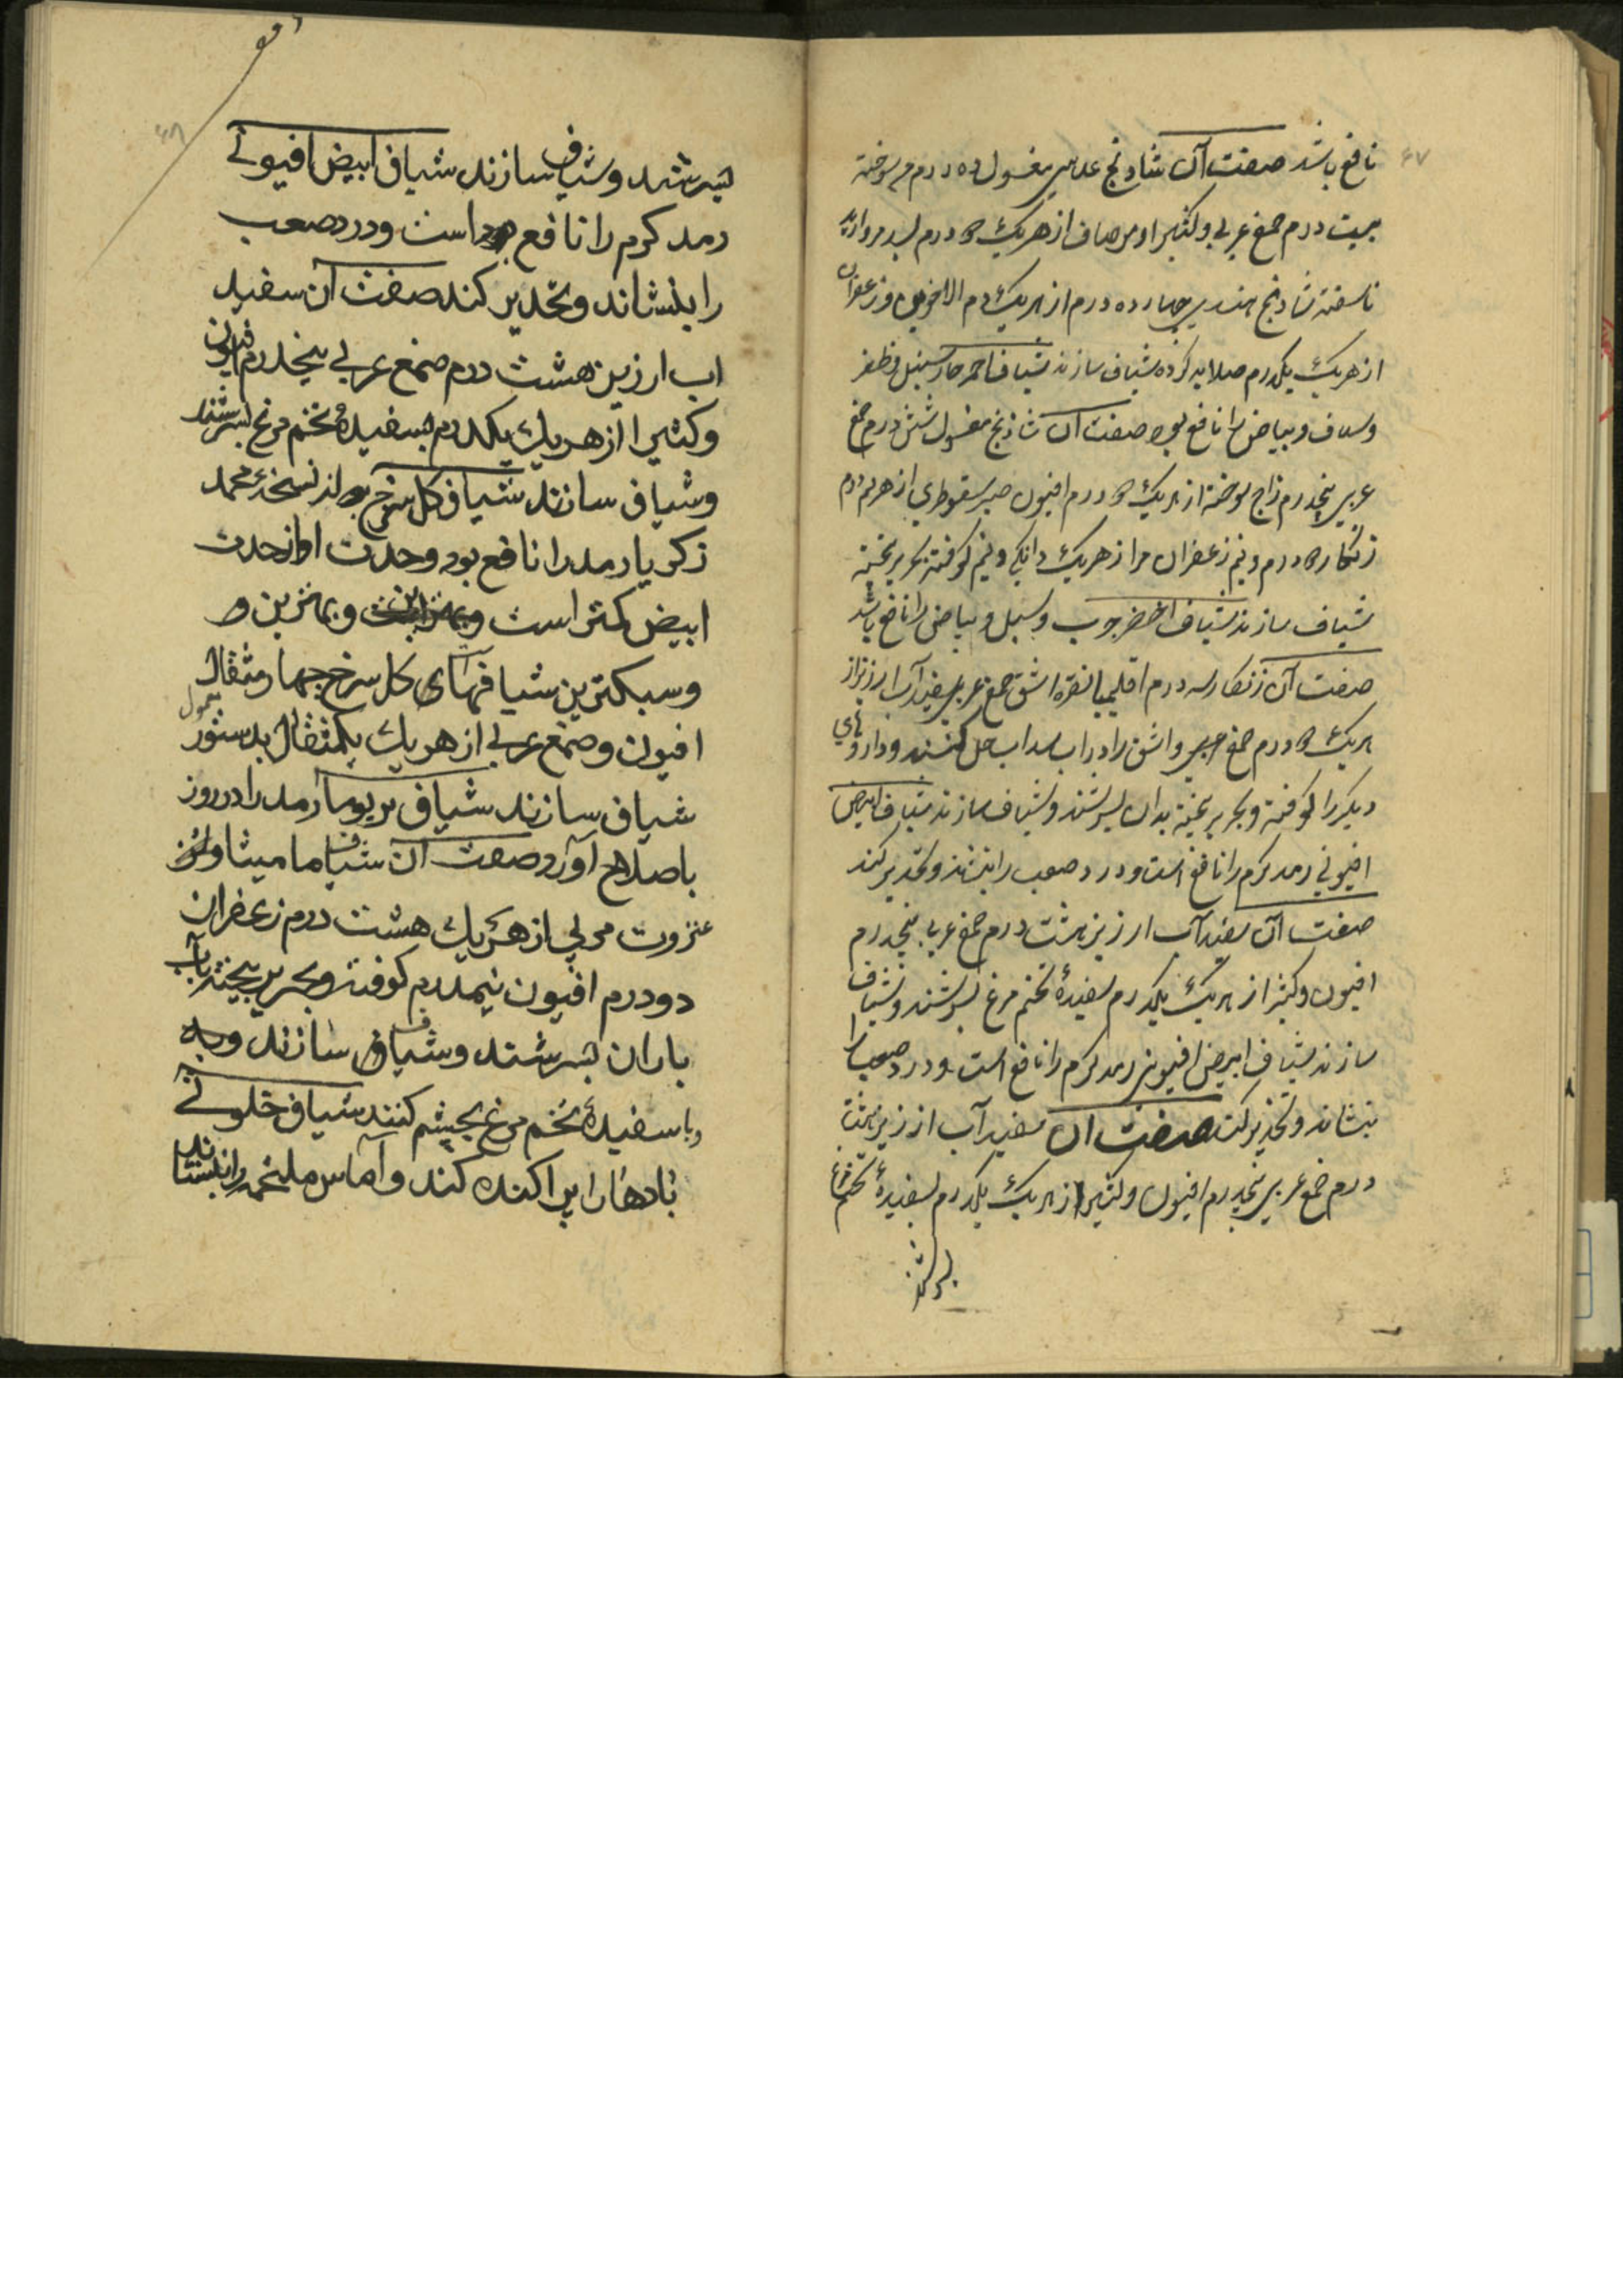 ۶۷
نافع باشد صفت آن شادنج عدسی مغسول ده درم مس سوخته
بیست درم صمغ عربی و کثیرا و مرصاف از هریک دو درم بسد مروارید
ناسفته شادنج هندی چهارده درم از هریک دم الاخوین و زعفران
از هریک یکدرم صلایه کرده شیاف سازند شیاف احمر حاد سبل و ظفر
و سلاق و بیاض را نافع بود صفت آن شادنج مغسول شش درم صمغ
عربی پنجدرم زاج سوخته از هریک دو درم افیون صبر سقوطری از هر نیم درم
زنکار دو درم و نیم زعفران مر از هریک دانکی و نیم کوفته بحریر بیخته
شیاف سازند شیاف اخضر جرب و سبل و بیاض را نافع باشد
صفت آن زنکار سه درم اقلیمیا نقره اشق صمغ عربی سفیدآب ارزیز از
هریک دو درم صمغ عربی و اشق را در آب سداب حل کنند و داروهای
دیکر را کوفته و بحریر بیخته بدان بسرشند و شیاف سازند شیاف ابیض
افیونی رمد کرم را نافع است و درد صعب را بنشاند و تخدیر کند
صفت آن سفیدآب ارزیز هشت درم صمغ عربی پنجدرم
افیون و کثیرا از هریک یکدرم بسفیدهٔ تخم مرغ بسرشند و شیاف
سازند شیاف ابیض افیونی رمد کرم را نافع است و درد صعب را
بنشاند و تخدیر کند صفت آن سفیدآب ارزیز هشت
درم صمغ عربی پنجدرم افیون و کثیرا از هریک یکدرم بسفیدهٔ تخم مرغ
بسرشند
۶۸
بسرشند و شیاف سازند شیاف ابیض افیونی
رمد کرم را نافع است و درد صعب
را بنشاند و تخدیر کند صفت آن سفید
اب ارزیز هشت درم صمغ عربی پنجدرم افیون
و کثیرا از هریک یکدرم بسفیدهٔ تخم مرغ بسرشند
و شیاف سازند شیاف کل سرخ از نسخهٔ محمد
زکریا رمد را نافع بود و حدت او از حدت
ابیض کمتر است و بهترین و
و سبکترین شیافهای کل سرخ چهار مثقال
افیون و صمغ عربی از هریک یکمثقال بدستور معمول
شیاف سازند شیاف بریوما رمد را در روز
باصلاح آورد صفت آن شیاف مامیثا و
عنزروت مربی از هریک هشت درم زعفران
دو درم افیون نیمدرم کوفته و بحریر بیخته بآب
باران بسرشند و شیاف سازند و
و با سفیدهٔ تخم مرغ بچشم کنند شیاف خلوقی
بادها را پراکنده کند و آماس ملتحمه را بنشاند